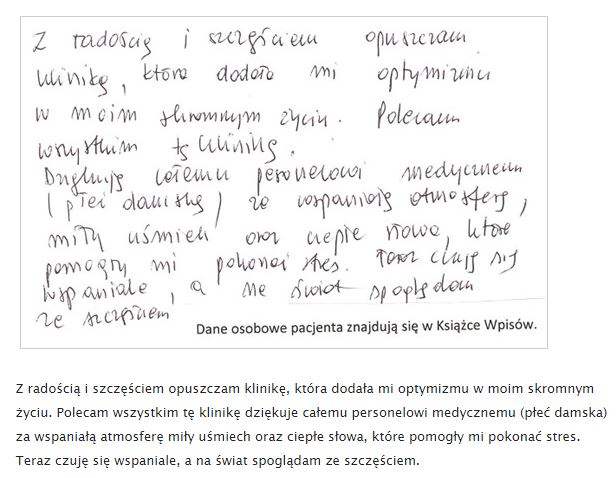 Z radością i szczęściem opuszczam
klinikę, która dodała mi optymizmu
w moim skromnym życiu. Polecam
wszystkim tę klinikę.
Dziękuję całemu personelowi medycznemu
(płeć damska) za wspaniałą atmosferę,
miły uśmiech oraz ciepłe słowa, które
pomogły mi pokonać stres. Teraz czuję się
wspaniale, a na świat spoglądam
ze szczęściem
Dane osobowe pacjenta znajdują się w Książce Wpisów.
Z radością i szczęściem opuszczam klinikę, która dodała mi optymizmu w moim skromnym
życiu. Polecam wszystkim tę klinikę dziękuje całemu personelowi medycznemu (płeć damska)
za wspaniałą atmosferę miły uśmiech oraz ciepłe słowa, które pomogły mi pokonać stres.
Teraz czuję się wspaniale, a na świat spoglądam ze szczęściem.